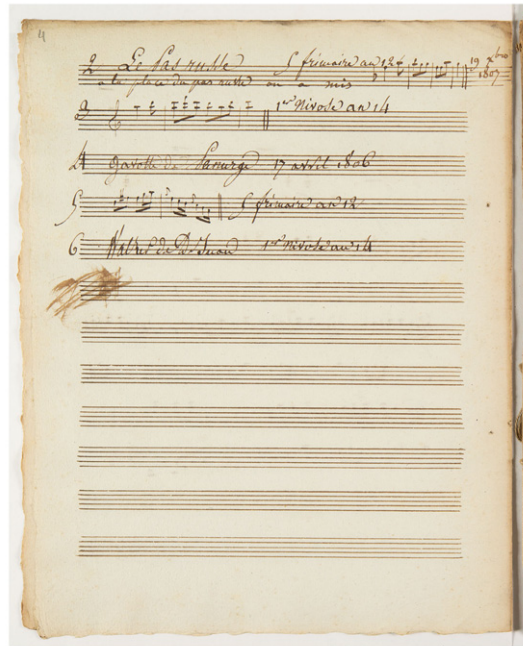 4
2 Le Pas russe 5 frimaire an 12 19 Xbre 1807
a la place du pas russe on a mis
3 1er Nivose an 14
4 gavotte de Panurge 17 avril 1806
5 5 frimaire an 12
6 Walses de D. Juan 1er Nivose an 14